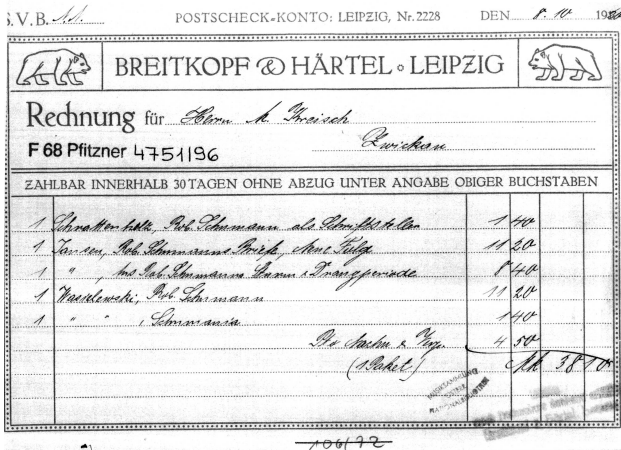 S.V.B. POSTSCHECK-KONTO: LEIPZIG, Nr. 2228 DEN 8. 10 19
BREITKOPF & HÄRTEL • LEIPZIG
Rechnung für Herrn M. Kreisch
Zwickau
F 68 Pfitzner 4751196
ZAHLBAR INNERHALB 30 TAGEN OHNE ABZUG UNTER ANGABE OBIGER BUCHSTABEN
1 Schrattenholz, Rob. Schumann als Schriftsteller 1 40
1 Jansen, Rob. Schumanns Briefe, Neue Folge 11 20
1 " , Aus Rob. Schumanns Sturm & Drangperiode 8 40
1 Wasielewski, Rob. Schumann 11 20
1 " " , Schumania 1 40
Nachn & 4 50
(1 Paket) Mk 38 10
106/72